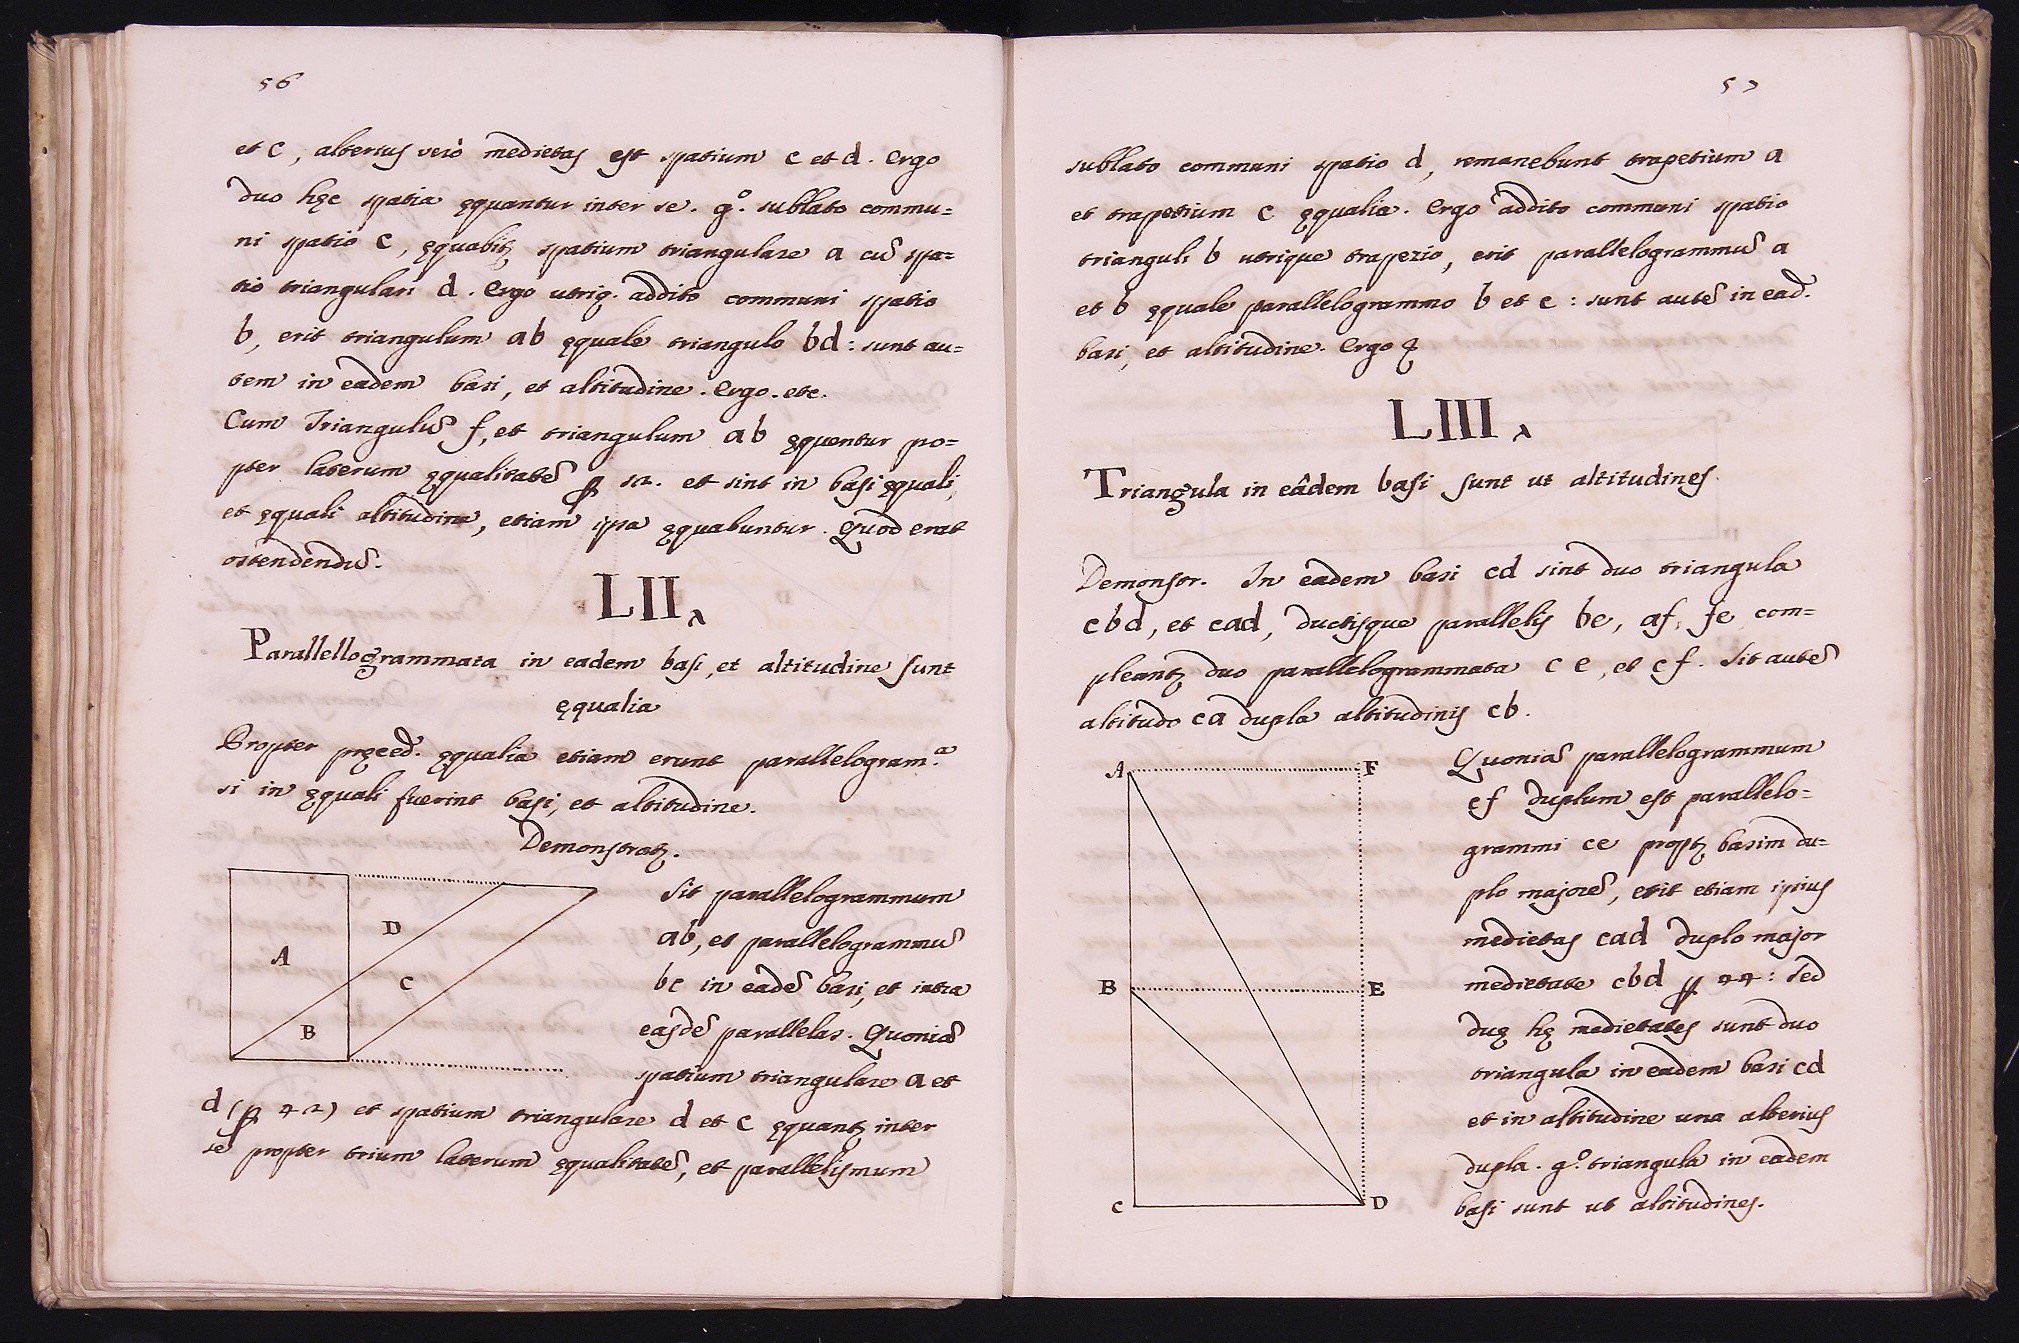 56
et c, alterius verò medietas est spatium c et d. Ergo
duo hęc spatia ęquantur inter se. gº. sublato commu=
ni spatio c, ęquabitȝ spatium triangulare a cũ spa=
tio triangulari d. Ergo utriq. addito communi spatio
b, erit triangulum ab ęquale triangulo bd: sunt au=
tem in eadem basi, et altitudine. Ergo. etc.
Cum Triangulũ f, et triangulum ab ęquentur pro=
pter laterum ęqualitatẽ ꝑ 52. et sint in basi ęquali,
et ęquali altitudine, etiam ipsa ęquabuntur. Quod erat
ostendendũ.
LII.
Parallellogrammata in eadem basi, et altitudine sunt
ęqualia
Propter pręced. ęqualia etiam erunt parallelogram.ª
si in ęquali fuerint basi, et altitudine.
Demonstratȝ.
A
D
C
B
Sit parallelogrammum
ab, et parallelogrammũ
bc in eadẽ basi, et intra
easdẽ parallelas. Quoniã
spatium triangulare a et
d (ꝑ 42) et spatium triangulare d et c ęquantȝ inter
se propter trium laterum ęqualitatẽ, et parallelismum
57
sublato communi spatio d, remanebunt trapetium a
et trapetium c ęqualia. Ergo addito communi spatio
trianguli b utrique trapezio, erit parallelogrammũ a
et b ęquale parallelogrammo b et c: sunt autẽ in ead.
basi, et altitudine. Ergo
LIII.
Triangula in eâdem basi sunt ut altitudines.
Demonstr. In eadem basi cd sint duo triangula
cbd, et cad, ductisque parallelis be, af, fe com=
pleantȝ duo parallelogrammata c e, et c f. Sit autẽ
altitudo ca dupla altitudinis cb.
A
F
B
E
C
D
Quoniã parallelogrammum
cf duplum est parallelo=
grammi ce proptȝ basim du=
plo majorẽ, erit etiam ipsius
medietas cad duplo major
medietate cbd ꝑ 44: Sed
duę hę medietates sunt duo
triangula in eadem basi cd
et in altitudine una alterius
dupla. gº. triangula in eadem
basi sunt ut altitudines.